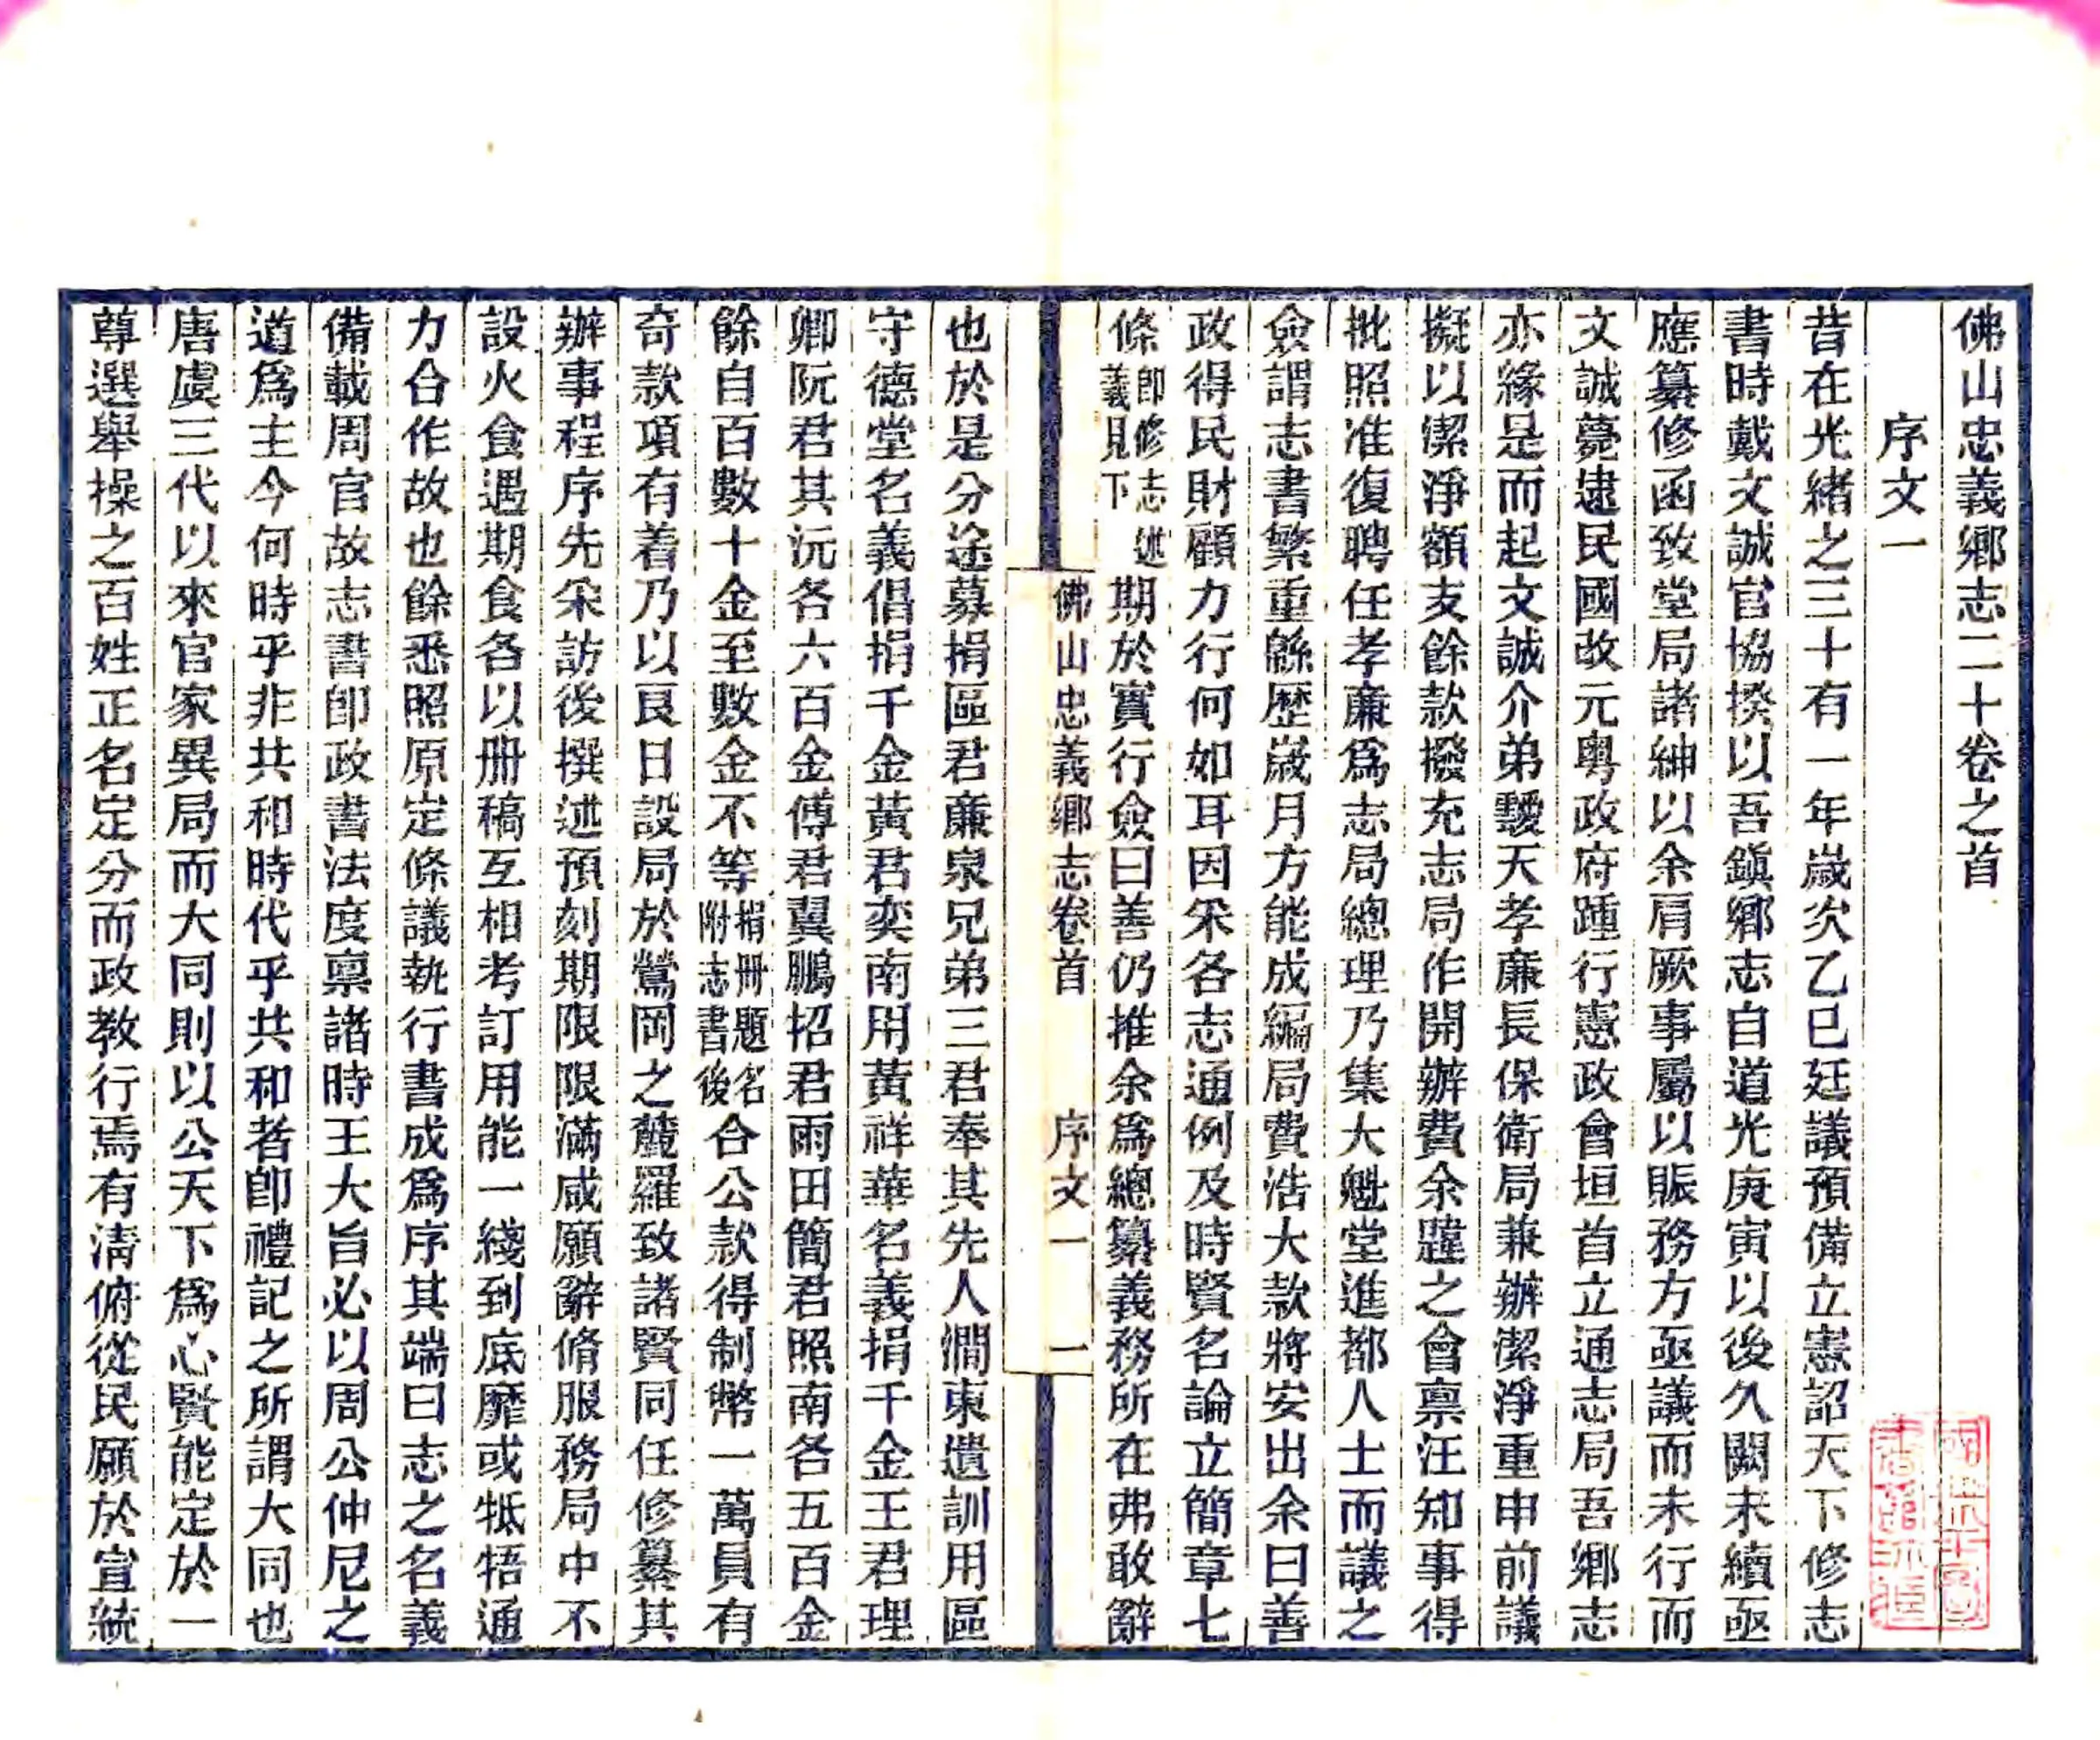 佛山忠義鄉志二十卷之首
序文一
昔在光緒之三十有一年歲次乙巳廷議預備立憲詔天下修志
書時戴文誠官協揆以吾鎮鄉志自道光庚寅以後久闕未續亟
應纂修函致堂局諸紳以余肩厥事屬以賑務方亟議而未行而
文誠薨逮民國改元粵政府踵行憲政會垣首立通志局吾鄉志
亦緣是而起文誠介弟靉天孝廉長保衛局兼辦潔淨重申前議
擬以潔淨額支餘款撥充志局作開辦費余韙之會禀汪知事得
批照准復聘任孝廉爲志局總理乃集大魁堂進都人士而議之
僉謂志書繁重緜歷歲月方能成編局費浩大款將安出余曰善
政得民財顧力行何如耳因采各志通例及時賢名論立簡章七
條卽修志述義見下期於實行僉曰善仍推余爲總纂義務所在弗敢辭
佛山忠義鄉志卷首 序文一 一
也於是分途募捐區君廉泉兄弟三君奉其先人澗東遺訓用區
守德堂名義倡捐千金黃君奕南用黃祥華名義捐千金王君理
卿阮君其沅各六百金傅君翼鵬招君雨田簡君照南各五百金
餘自百數十金至數金不等捐冊題名附志書後合公款得制幣一萬員有
奇款項有着乃以良日設局於鶯岡之麓羅致諸賢同任修纂其
辦事程序先采訪後撰述預刻期限限滿咸願辭脩服務局中不
設火食遇期食各以册稿互相考訂用能一綫到底靡或牴牾通
力合作故也餘悉照原定條議執行書成爲序其端曰志之名義
備載周官故志書卽政書法度禀諸時王大旨必以周公仲尼之
道爲主今何時乎非共和時代乎共和者卽禮記之所謂大同也
唐虞三代以來官家異局而大同則以公天下爲心賢能定於一
尊選舉操之百姓正名定分而政教行焉有淸俯從民願於宣統